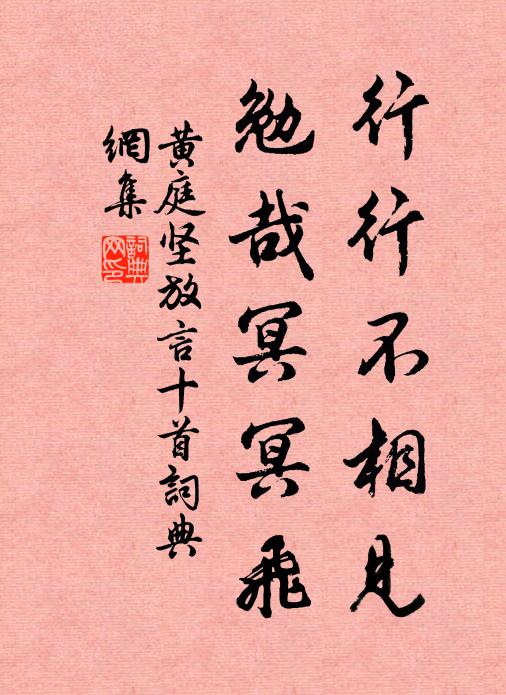 行行不相見
勉哉冥冥飛
黄庭坚放言十首詞典
網集
詞典
网印